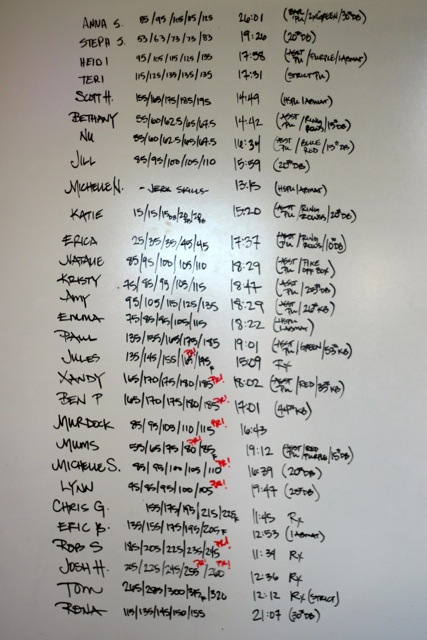 ANNA S. 85/95/105/115/125 26:01
STEPH S. 53/63/73/73/83 19:26 (20#DB)
HEIDI 95/105/115/125/135 17:58
TERI 115/125/135/135/135 17:31 (STRICT PU)
SCOTT H. 155/165/175/185/195 14:49 (HSPU/ABMAT)
BETHANY 55/60/62.5/65/67.5 14:42 (ASST PU/RING ROWS/15#DB)
NU 55/60/62.5/65/67.5 16:34 (ASST PU/BLUE RED/15#DB)
JILL 85/95/100/105/110 15:59 (20#DB)
MICHELLE N. - JERK SKILLS - 13:15 (HSPU/ABMAT)
KATIE 15/15/15 15:20 (ASST PU/RING ROWS/20#DB)
ERICA 25/35/35/45/45 17:37 (ASST PU/RING ROWS/10#DB)
NATALIE 85/95/100/105/110 18:29 (ASST PU/PIKE OFF BOX)
KRISTY 75/85/95/105/115 18:47 (ASST PU/25#DB)
AMY 95/105/115/125/135 18:29
EMMA 75/85/95/105/115 18:22 (HSPU ABMAT)
PAUL 135/155/165/175/185 19:01
JULES 135/145/155/165/175 PR! 15:09 RX
XANDY 165/170/175/180/185 PR! 18:02
BEN P 165/170/175/180/185 PR! 17:01
MURDOCK 85/95/105/110/115 PR! 16:43
MUMS 55/65/75/80/85 PR! 19:12 (ASST PU/RED PURPLE/15#DB)
MICHELLE S. 85/95/100/105/110 PR! 16:39 (20#DB)
LYNN 85/95/100/105 PR! 19:47 (25#DB)
CHRIS G. 155/175/195/215/225F 11:45 RX
ERIC B. 135/155/175/195/205F 12:53 (ABMAT)
ROB S 185/205/225/235/245 PR! 11:34 RX
JOSH H. 225/245/255/260 PR! PR! 12:36 RX
TOM 320 12:12 RX (STRICT)
RENA 115/135/145/150/155 21:07 (30#DB)